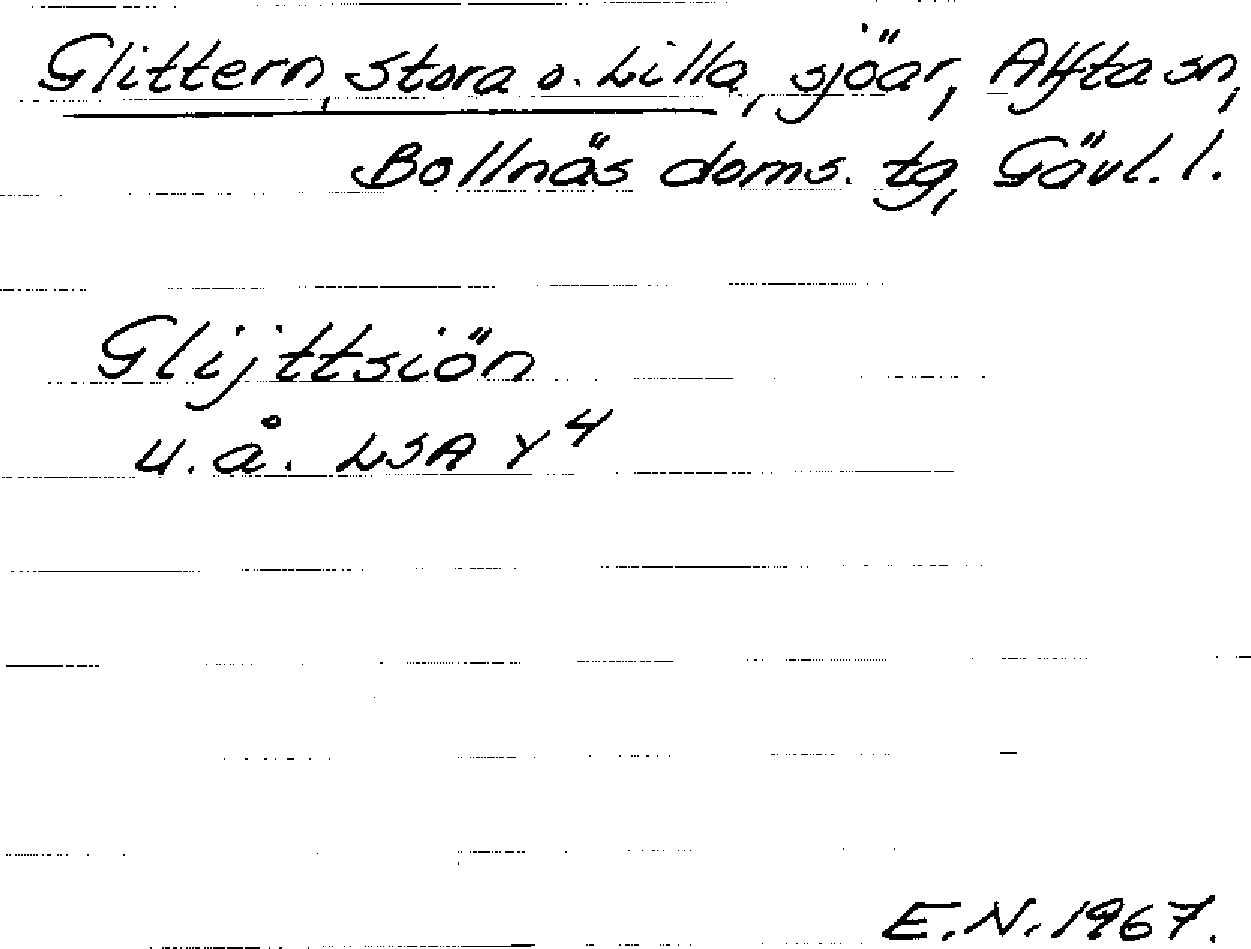 Glittern, Stora o. Lilla, sjöar, Alfta sn,
Bollnäs doms. tg, Gävl. l.
Glijttsiön
u.å. LSA Y4
E.N. 1967.